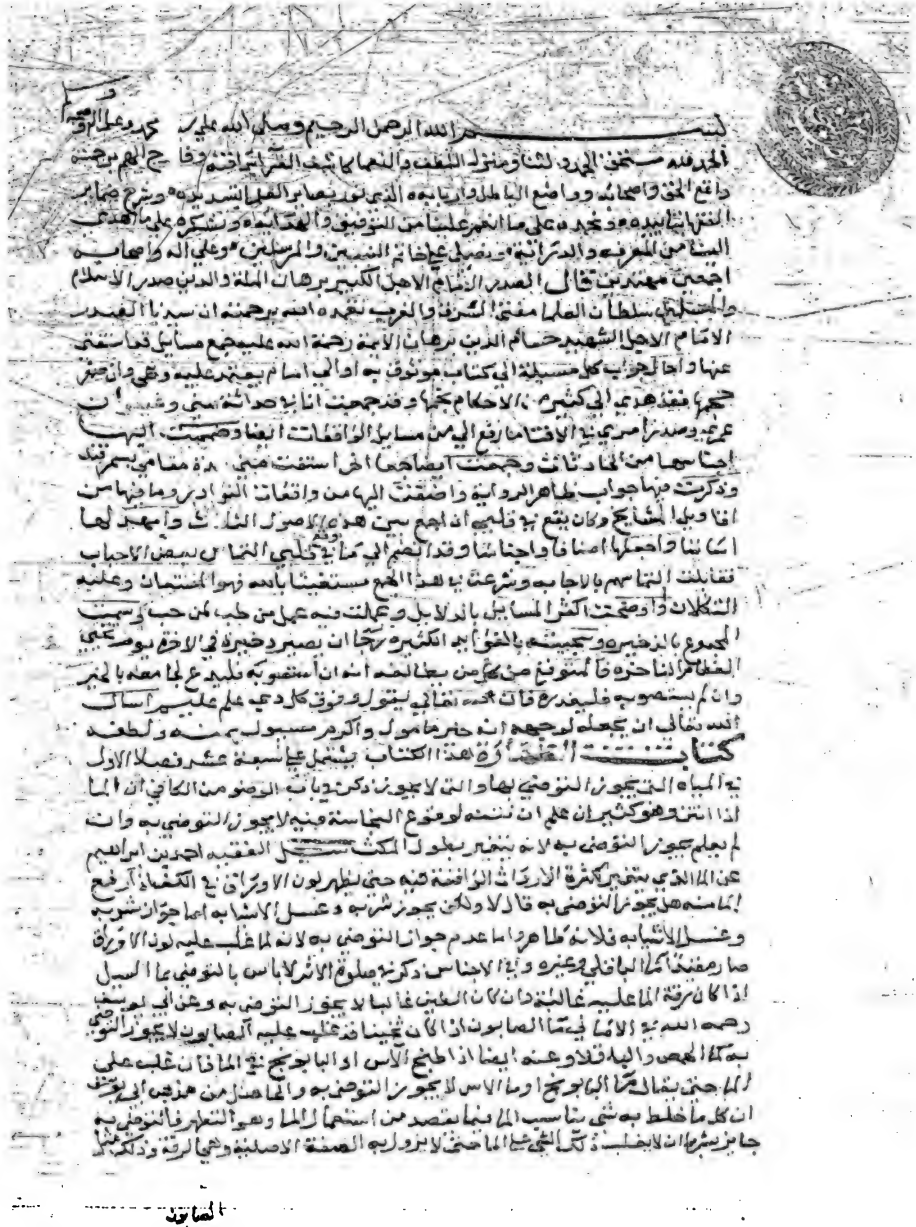 بسم الله الرحمن الرحيم وصلى الله على محمد وعلى اله
الحمد لله مستحق الحمد والثنا
دافع الحق واصحابه وواضع الباطل واربابه الذي نور بصاير السديده وشرح ضماير
ونحمده على ما انعم علينا من التوفيق والهدايه ونشكره على ما هدى
الينا من المعرفه والدرايه ونصلي على خاتم النبيين والمرسلين وعلى اله واصحابه
اجمعين قال الصدر الامام الاجل الكبير برهان الملة والدين صدر الاسلام
والمسلمين سلطان العلما مفتي الشرق والغرب تغمده الله برحمته ان سيدنا الصدر
الامام الاجل الشهيد حسام الدين برهان الايمة رحمة الله عليه جمع مسايل قد استفتي
عنها واحال جواب كل مسيلة الى كتاب موثوق به او الى امام يعتمد عليه وهي وان صغر
حجمها فقد هدى الى كثير من الاحكام وقد جمعت انا في حداثة سني وعنفوان
عمري وصدر امري في الافتا ما رفع الي من مسايل الواقعات ايضا وضممت اليها
اجناسها من الحادثات وجمعت ايضا جمعا اخر استفت مني مدة مقامي بسمرقند
وذكرت فيها جواب ظاهر الرواية واضفت اليها من واقعات النوادر وما فيها من
اقاويل المشايخ وكان يقع في قلبي ان اجمع بين هذه الاصول الثلاث وامهد لها
اساسا واجعلها اصنافا واجناسا وقد انضم الى ما وقع في قلبي التماس بعض الاحباب
فقابلت التماسهم بالاجابه وشرعت في هذا الجمع مستعينا بالله فهو المستعان وعليه
التكلان واوضحت اكثر المسايل بالدلايل وعملت فيه عمل من طب لمن حب وسميت
المجموع بالذخيره وشحنته بالفوايد الكثيره رجا ان يصير ذخيرة في الاخرة
فالمتوقع من كل من يطالعه انه ان استصوبه فليدع لجامعه بالخير
وان لم يستصوبه فليعذره فان الله تعالى يقول وفوق كل ذي علم عليم واسال
الله تعالى ان يجعله لوجهه انه خير مامول واكرم مسيول بمنه ولطفه
كتاب الطهارة هذا الكتاب يشتمل على تسعة عشر فصلا الاول
في المياه التي يجوز التوضي بها والتي لا يجوز ذكر في باب الوضو من الكافي ان الما
اذا انتن وهو كثير ان علم ان نتنه لوقوع النجاسة فيه لا يجوز التوضي به وان
لم يعلم يجوز التوضي به لانه يتغير بطول المكث سئل الفقيه احمد بن ابراهيم
عن الما الذي يتغير لكثرة الاوراق الواقعة فيه حتى يظهر لون الاوراق في الكف اذا رفع
الما منه هل يجوز التوضي به قال لا ولكن يجوز شربه وغسل الاشيا به اما جواز شربه
وغسل الاشيا به فلانه طاهر واما عدم جواز التوضي به لانه لما غلب عليه لون الاوراق
صار مقيدا كما الباقلي وغيره وفي الاجناس ذكر في صلوة الاثر لا باس بالتوضي بما السيل
اذا كان رقة الما عليه غالبة وان كان الطين غالبا لا يجوز التوضي به وعن ابي يوسف
رحمه الله في الامالي في ما الصابون اذا كان ثخينا قد غلب عليه الصابون لا يجوز التوضي
به كما الحمص والباقلا وعنه ايضا اذا طبخ الآس او البابونج في الما فان غلب على
الما حتى يقال ما البابونج او ما الاس لا يجوز التوضي به والحاصل من مذهب ابي يوسف
ان كل ما خلط به شي يناسب الما فيما يقصد من استعمال الما وهو التطهر فالتوضي به
جايز بشرط ان لا يغلب ذلك الشي على الما حتى لا يزول به الصفة الاصلية وهي الرقة وذلك مثل
الصابون